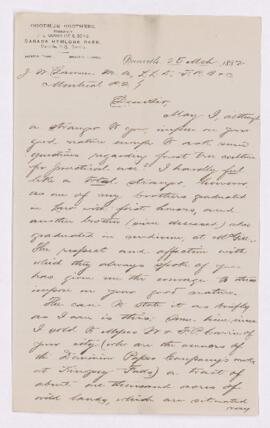 GOODHUE BROTHERS,
CANADA HEMLOCK BARK.
Danville, P.Q. Canada
Danville 25 Mch 1892
J W Dawson M. A, L.L.D. F.R.S &c
Montreal P.Q
Dear Sir
May I, although
a stranger to you, impose on your
good nature enough to ask some
questions regarding forest tree culture
for practical use? I hardly feel
like a total stranger, however
as one of my brothers graduated
in law with first honors, and
another brother (since deceased) also
graduated in medicine at McGill
The respect and affection with
which they always spoke of you
has given me the courage to thus
impose on your good nature.
The case to state it as briefly
as I can is this. Some time since
I sold to Messrs W & F P Currie of
your city (who are the owners of
the Dominion Paper Company's mills
at Kingsey Falls) a tract of
about one thousand acres of
wild lands, which are situated